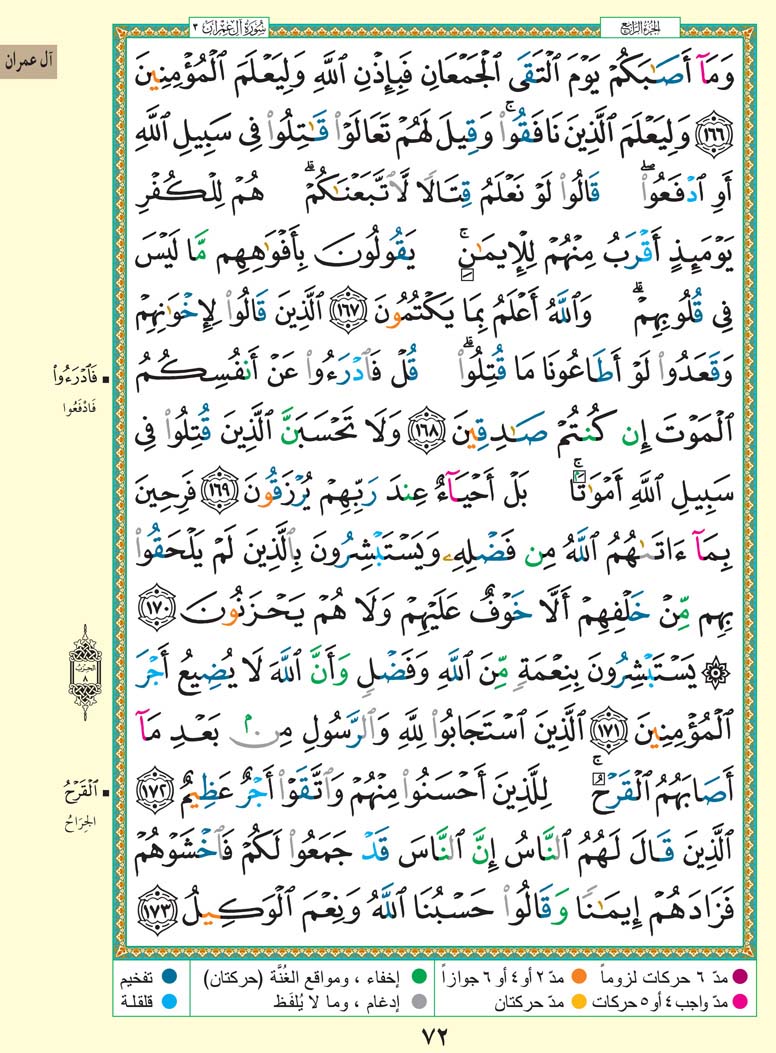 الجزء الرابع
سورة آل عمران ٣
آل عمران
وَمَآ أَصَٰبَكُمْ يَوْمَ ٱلْتَقَى ٱلْجَمْعَانِ فَبِإِذْنِ ٱللَّهِ وَلِيَعْلَمَ ٱلْمُؤْمِنِينَ
١٦٦ وَلِيَعْلَمَ ٱلَّذِينَ نَافَقُوا۟ۚ وَقِيلَ لَهُمْ تَعَالَوْا۟ قَٰتِلُوا۟ فِى سَبِيلِ ٱللَّهِ
أَوِ ٱدْفَعُوا۟ۖ قَالُوا۟ لَوْ نَعْلَمُ قِتَالًا لَّٱتَّبَعْنَٰكُمْۗ هُمْ لِلْكُفْرِ
يَوْمَئِذٍ أَقْرَبُ مِنْهُمْ لِلْإِيمَٰنِۚ يَقُولُونَ بِأَفْوَٰهِهِم مَّا لَيْسَ
فِى قُلُوبِهِمْۗ وَٱللَّهُ أَعْلَمُ بِمَا يَكْتُمُونَ ١٦٧ ٱلَّذِينَ قَالُوا۟ لِإِخْوَٰنِهِمْ
وَقَعَدُوا۟ لَوْ أَطَاعُونَا مَا قُتِلُوا۟ۗ قُلْ فَٱدْرَءُوا۟ عَنْ أَنفُسِكُمُ
ٱلْمَوْتَ إِن كُنتُمْ صَٰدِقِينَ ١٦٨ وَلَا تَحْسَبَنَّ ٱلَّذِينَ قُتِلُوا۟ فِى
سَبِيلِ ٱللَّهِ أَمْوَٰتًۢاۚ بَلْ أَحْيَآءٌ عِندَ رَبِّهِمْ يُرْزَقُونَ ١٦٩ فَرِحِينَ
بِمَآ ءَاتَىٰهُمُ ٱللَّهُ مِن فَضْلِهِۦ وَيَسْتَبْشِرُونَ بِٱلَّذِينَ لَمْ يَلْحَقُوا۟
بِهِم مِّنْ خَلْفِهِمْ أَلَّا خَوْفٌ عَلَيْهِمْ وَلَا هُمْ يَحْزَنُونَ ١٧٠
۞ يَسْتَبْشِرُونَ بِنِعْمَةٍ مِّنَ ٱللَّهِ وَفَضْلٍ وَأَنَّ ٱللَّهَ لَا يُضِيعُ أَجْرَ
ٱلْمُؤْمِنِينَ ١٧١ ٱلَّذِينَ ٱسْتَجَابُوا۟ لِلَّهِ وَٱلرَّسُولِ مِنۢ بَعْدِ مَآ
أَصَابَهُمُ ٱلْقَرْحُۚ لِلَّذِينَ أَحْسَنُوا۟ مِنْهُمْ وَٱتَّقَوْا۟ أَجْرٌ عَظِيمٌ ١٧٢
ٱلَّذِينَ قَالَ لَهُمُ ٱلنَّاسُ إِنَّ ٱلنَّاسَ قَدْ جَمَعُوا۟ لَكُمْ فَٱخْشَوْهُمْ
فَزَادَهُمْ إِيمَٰنًا وَقَالُوا۟ حَسْبُنَا ٱللَّهُ وَنِعْمَ ٱلْوَكِيلُ ١٧٣
فَٱدْرَءُوا۟
فَادْفَعُوا
الحزب ٨
ٱلْقَرْحُ
الجِرَاحُ
مدّ ٦ حركات لزوماً مدّ ٢ أو ٤ أو ٦ جوازاً إخفاء ، ومواقع الغُنَّة (حركتان) تفخيم
مدّ واجب ٤ أو ٥ حركات مدّ حركتان إدغام ، وما لا يُلفَظ قلقلة
٧٢